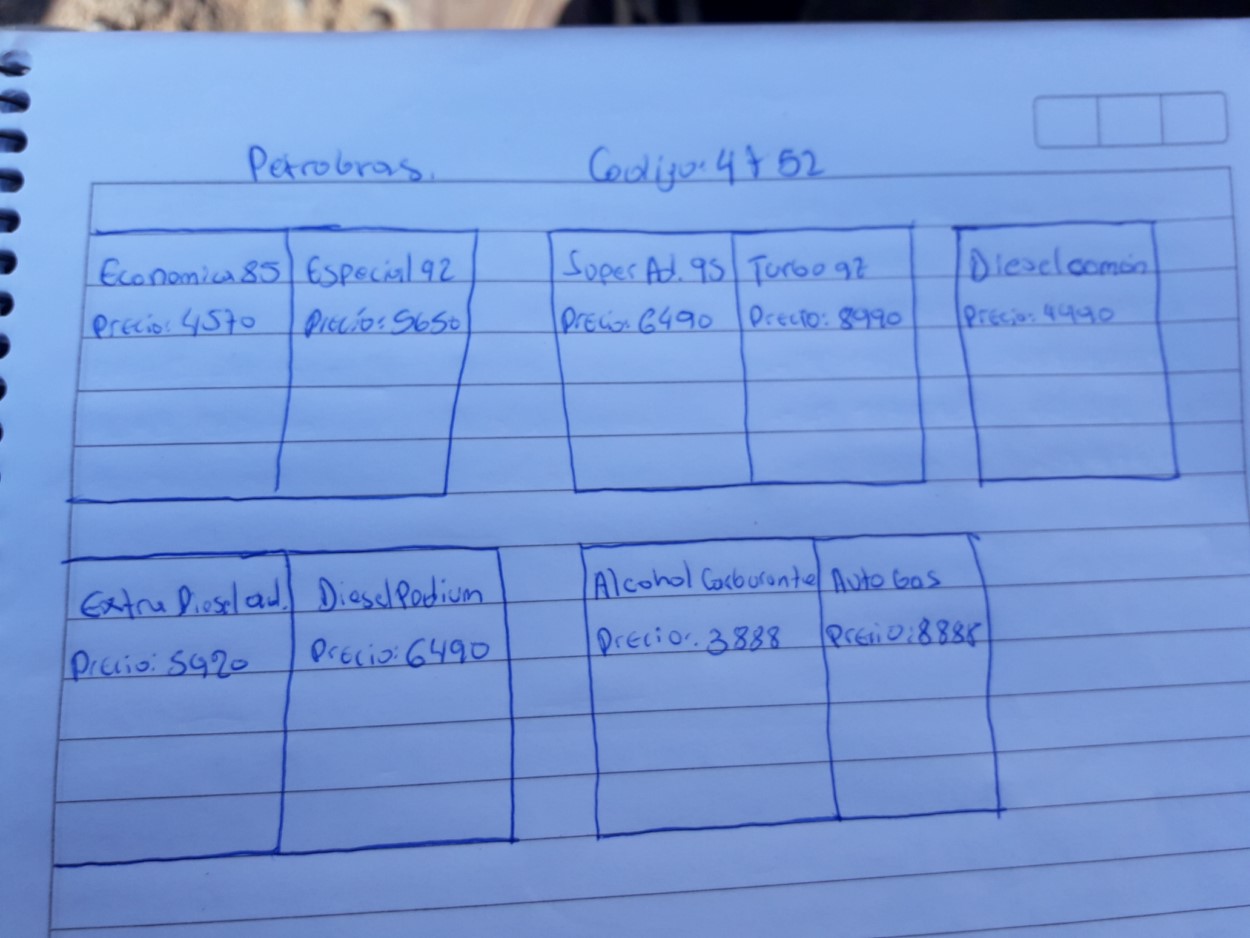 Petrobras. Codigo: 4752
Economica 85 Especial 92 Super Ad. 95 Turbo 97 Diesel común
Precio: 4570 Precio: 5650 Precio: 6490 Precio: 8990 Precio: 4990
Extra Diesel ad. Diesel Podium Alcohol Carburante Auto Gas
Precio: 5920 Precio: 6490 Precio: 3888 Precio: 8888